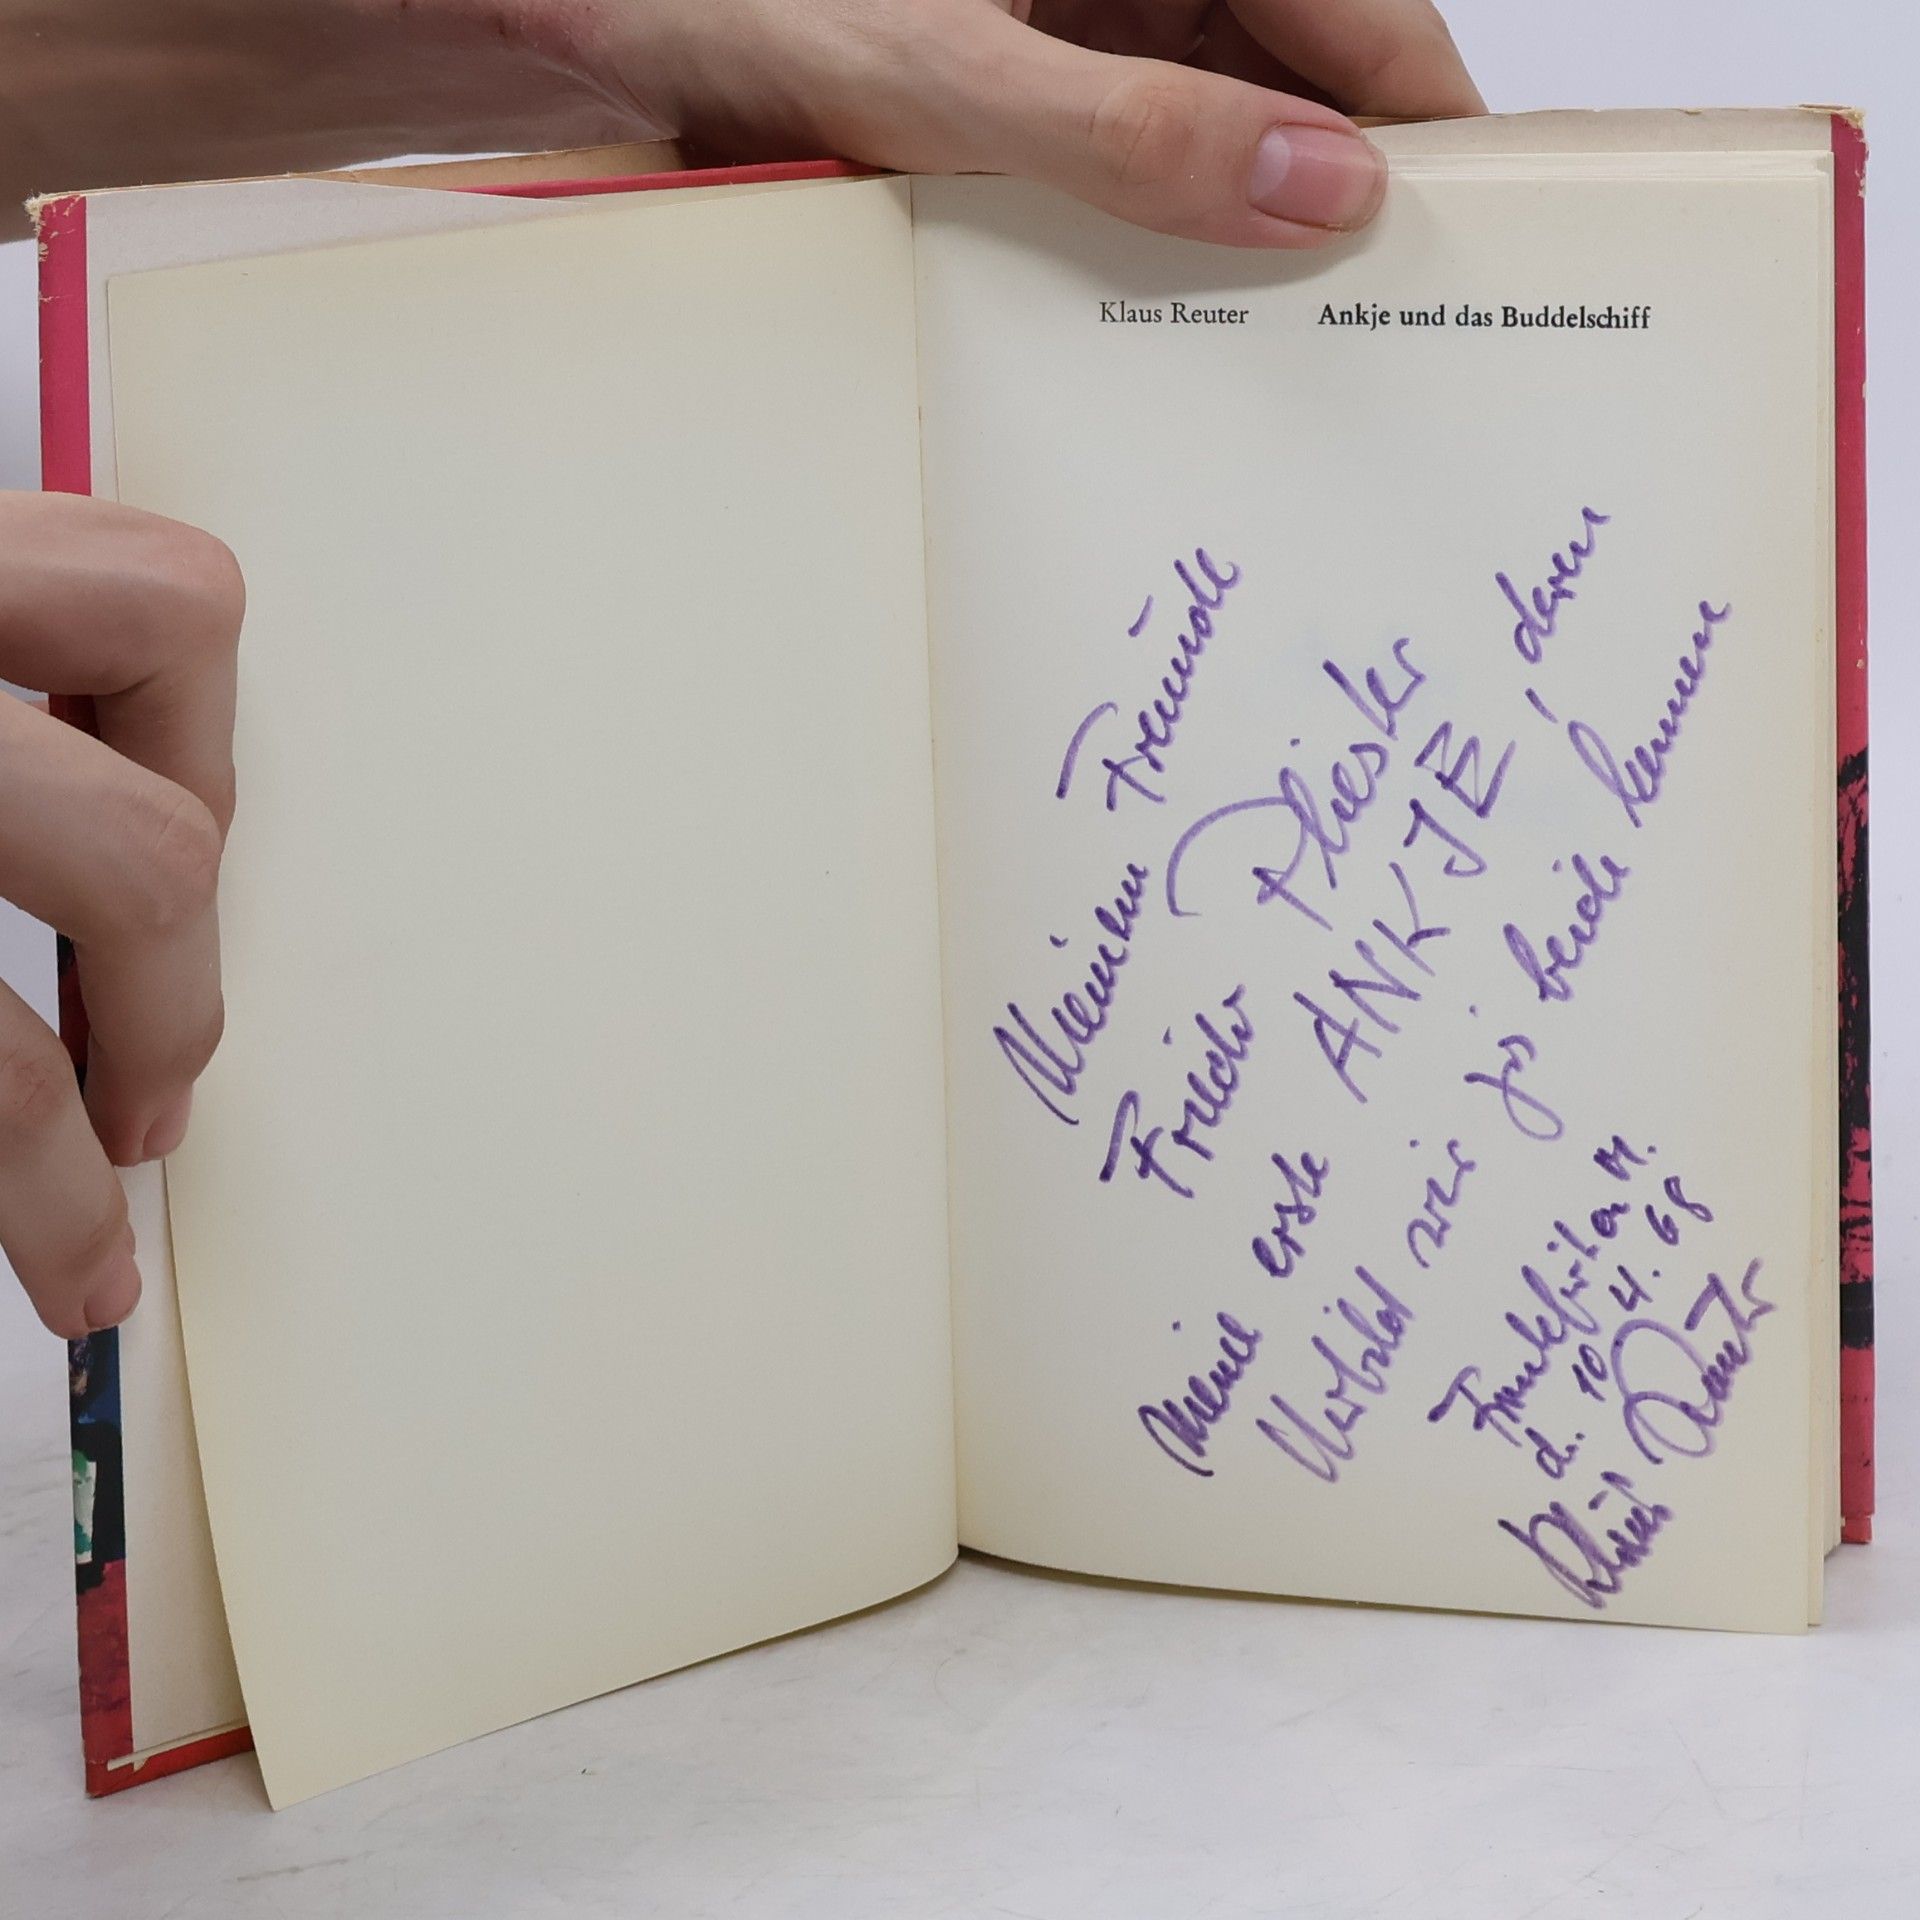 Klaus Reuter Ankje und das Buddelschiff
Meinem Freunde
Friedr. Pliester
Meine erste ANKJE, deren
Urbild wir ja beide kennen
Frankfurt a M.
d. 10. 4. 68
Klaus Reuter